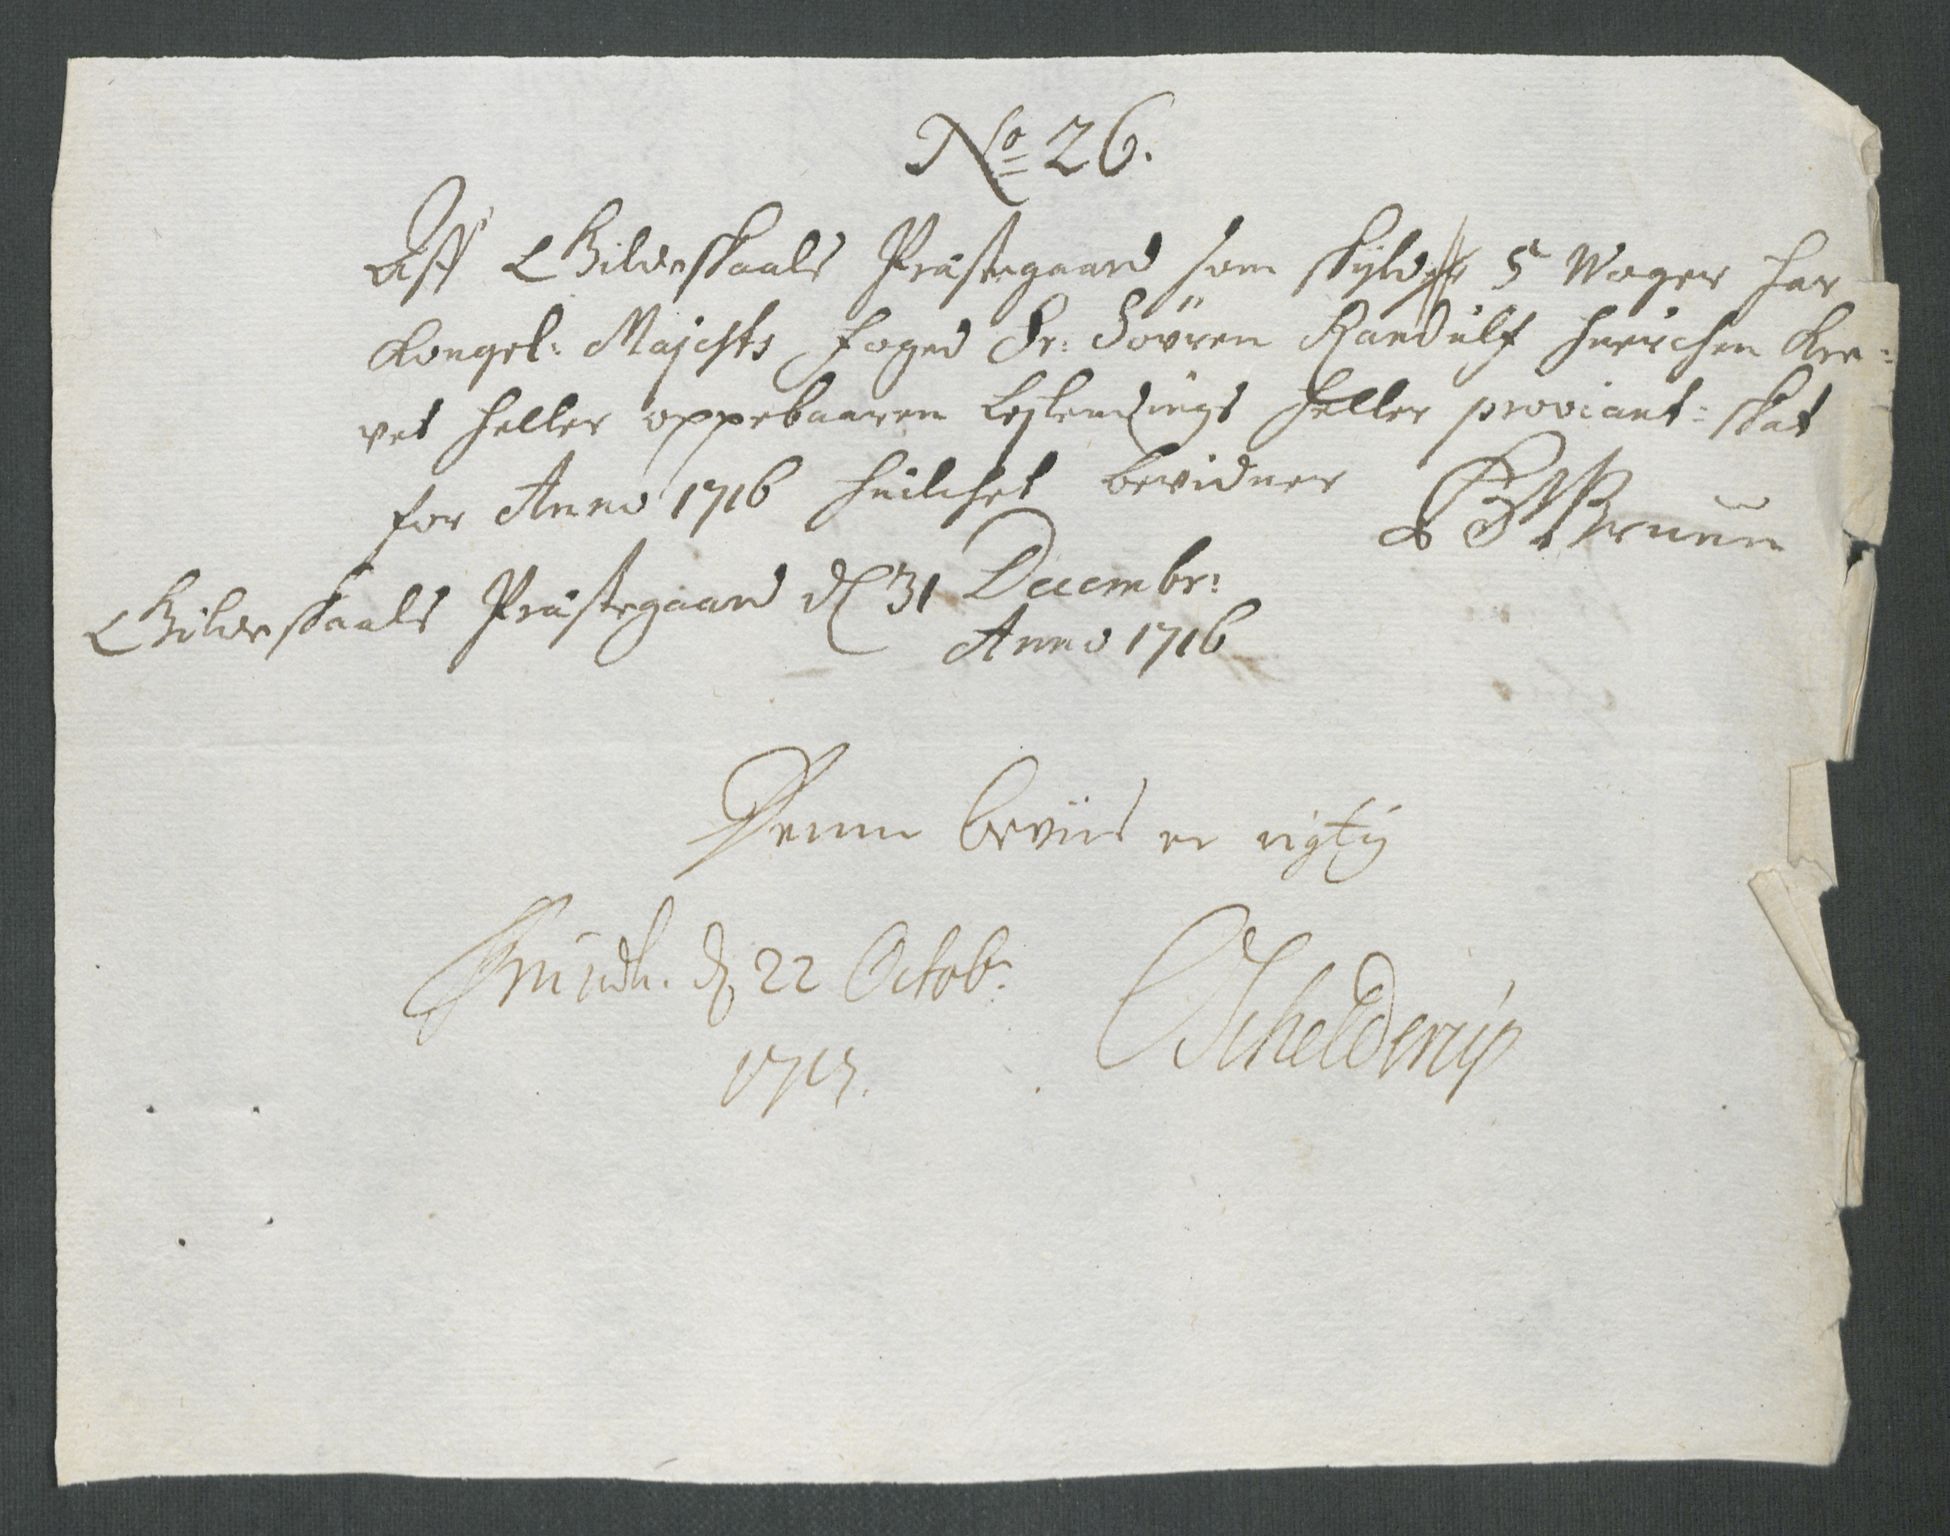 No 26.
Aff Gilleskaals Præstegaard som skylder 5 Woger har
Kongel: Majests foged Sr: Søvren Randulf huerchen Kre=
vet heller oppebaaren Leylendings heller proviant=skat
for Anno 1716 huilchet bevidner BBruun
Gilleskaals Præstegaard d 31 Decembr:
Anno 1716
Denne beviis er rigtig
d 22 Octobr:
1717.
Schelderup